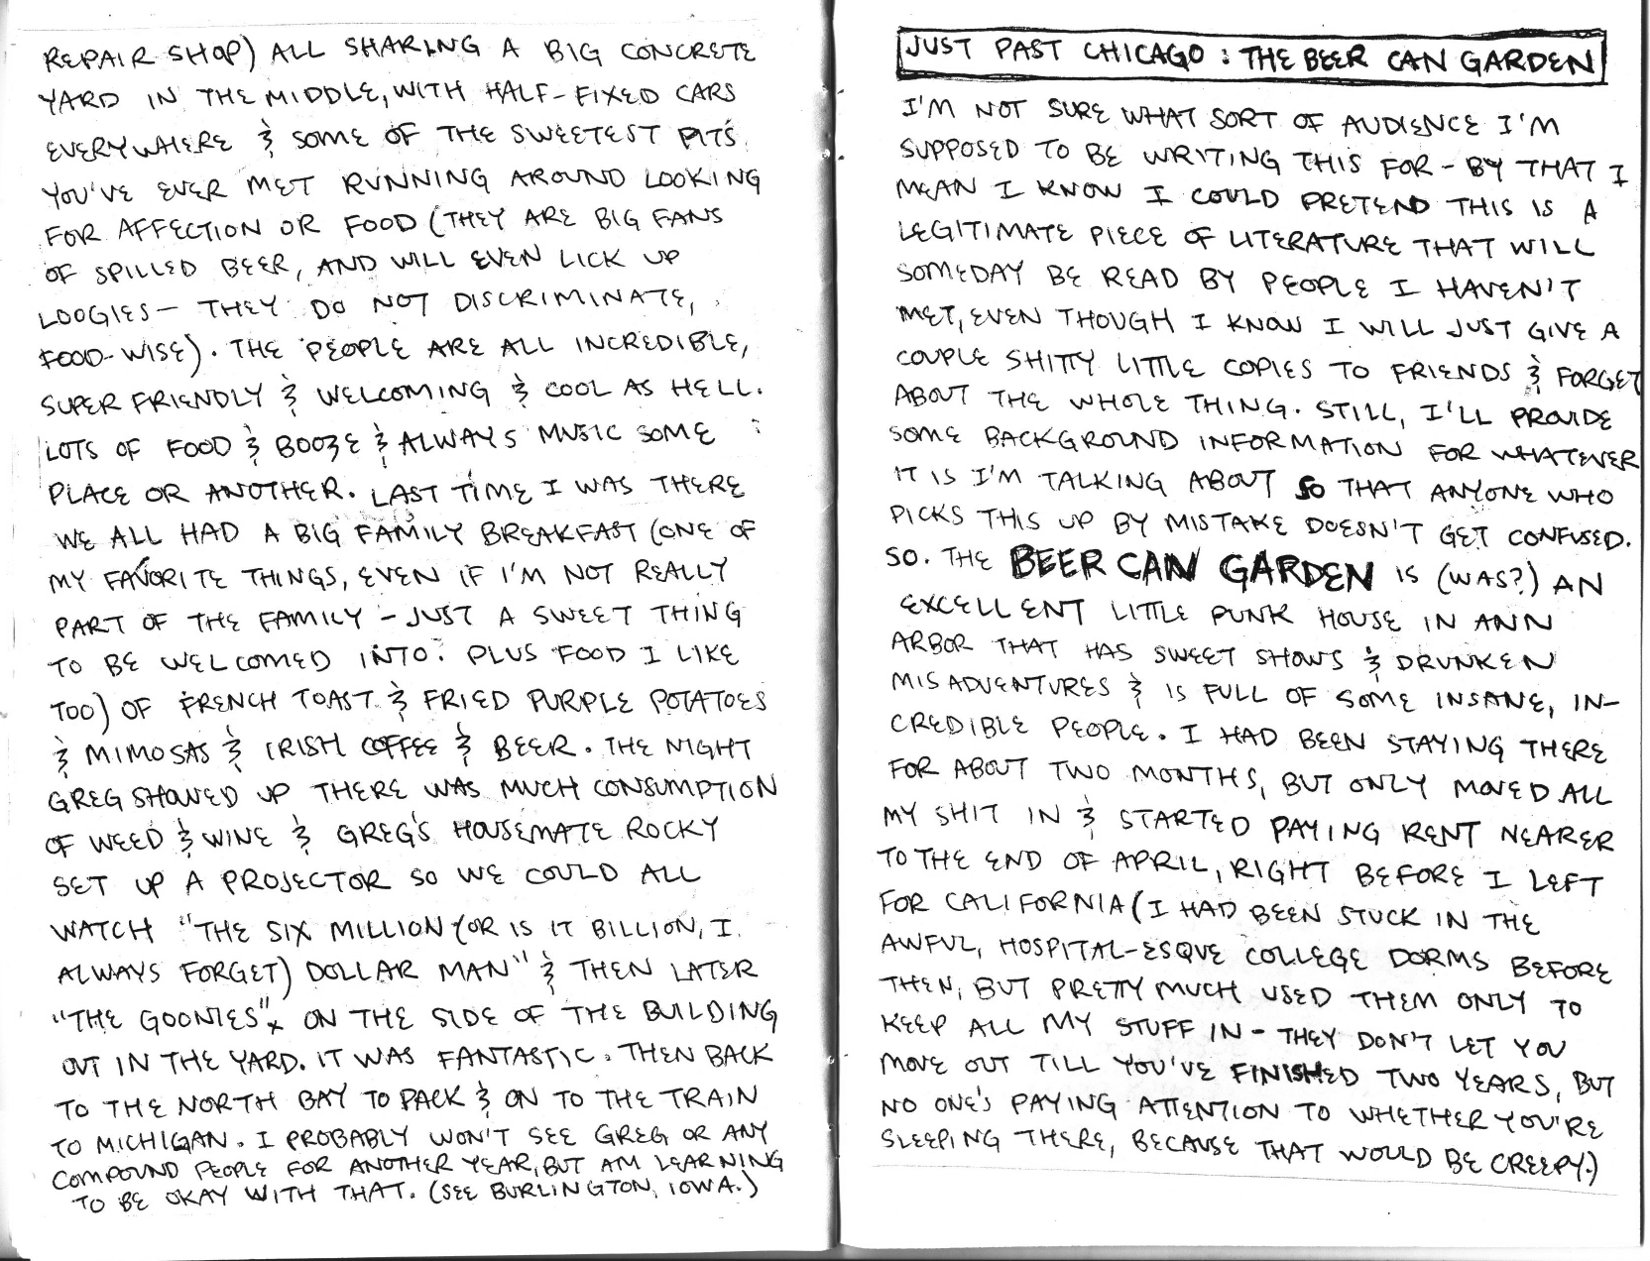 REPAIR SHOP) ALL SHARING A BIG CONCRETE
YARD IN THE MIDDLE, WITH HALF-FIXED CARS
EVERYWHERE & SOME OF THE SWEETEST PITS
YOU'VE EVER MET RUNNING AROUND LOOKING
FOR AFFECTION OR FOOD (THEY ARE BIG FANS
OF SPILLED BEER, AND WILL EVEN LICK UP
LOOGIES- THEY DO NOT DISCRIMINATE,
FOOD-WISE). THE PEOPLE ARE ALL INCREDIBLE,
SUPER FRIENDLY & WELCOMING & COOL AS HELL.
LOTS OF FOOD & BOOZE & ALWAYS MUSIC SOME
PLACE OR ANOTHER. LAST TIME I WAS THERE
WE ALL HAD A BIG FAMILY BREAKFAST (ONE OF
MY FAVORITE THINGS, EVEN IF I'M NOT REALLY
PART OF THE FAMILY - JUST A SWEET THING
TO BE WELCOMED INTO. PLUS FOOD I LIKE
TOO) OF FRENCH TOAST & FRIED PURPLE POTATOES
& MIMOSAS & IRISH COFFEE & BEER. THE NIGHT
GREG SHOWED UP THERE WAS MUCH CONSUMPTION
OF WEED & WINE & GREG'S HOUSEMATE ROCKY
SET UP A PROJECTOR SO WE COULD ALL
WATCH "THE SIX MILLION (OR IS IT BILLION, I
ALWAYS FORGET) DOLLAR MAN" & THEN LATER
"THE GOONIES" ON THE SIDE OF THE BUILDING
OUT IN THE YARD. IT WAS FANTASTIC. THEN BACK
TO THE NORTH BAY TO PACK & ON TO THE TRAIN
TO MICHIGAN. I PROBABLY WON'T SEE GREG OR ANY
COMPOUND PEOPLE FOR ANOTHER YEAR, BUT AM LEARNING
TO BE OKAY WITH THAT. (SEE BURLINGTON, IOWA.)
JUST PAST CHICAGO: THE BEER CAN GARDEN
I'M NOT SURE WHAT SORT OF AUDIENCE I'M
SUPPOSED TO BE WRITING THIS FOR - BY THAT I
MEAN I KNOW I COULD PRETEND THIS IS A
LEGITIMATE PIECE OF LITERATURE THAT WILL
SOMEDAY BE READ BY PEOPLE I HAVEN'T
MET, EVEN THOUGH I KNOW I WILL JUST GIVE A
COUPLE SHITTY LITTLE COPIES TO FRIENDS & FORGET
ABOUT THE WHOLE THING. STILL, I'LL PROVIDE
SOME BACKGROUND INFORMATION FOR WHATEVER
IT IS I'M TALKING ABOUT SO THAT ANYONE WHO
PICKS THIS UP BY MISTAKE DOESN'T GET CONFUSED.
SO. THE BEER CAN GARDEN IS (WAS?) AN
EXCELLENT LITTLE PUNK HOUSE IN ANN
ARBOR THAT HAS SWEET SHOWS & DRUNKEN
MISADVENTURES & IS FULL OF SOME INSANE, IN-
CREDIBLE PEOPLE. I HAD BEEN STAYING THERE
FOR ABOUT TWO MONTHS, BUT ONLY MOVED ALL
MY SHIT IN & STARTED PAYING RENT NEARER
TO THE END OF APRIL, RIGHT BEFORE I LEFT
FOR CALIFORNIA (I HAD BEEN STUCK IN THE
AWFUL, HOSPITAL-ESQUE COLLEGE DORMS BEFORE
THEN, BUT PRETTY MUCH USED THEM ONLY TO
KEEP ALL MY STUFF IN - THEY DON'T LET YOU
MOVE OUT TILL YOU'VE FINISHED TWO YEARS, BUT
NO ONE'S PAYING ATTENTION TO WHETHER YOU'RE
SLEEPING THERE, BECAUSE THAT WOULD BE CREEPY.)